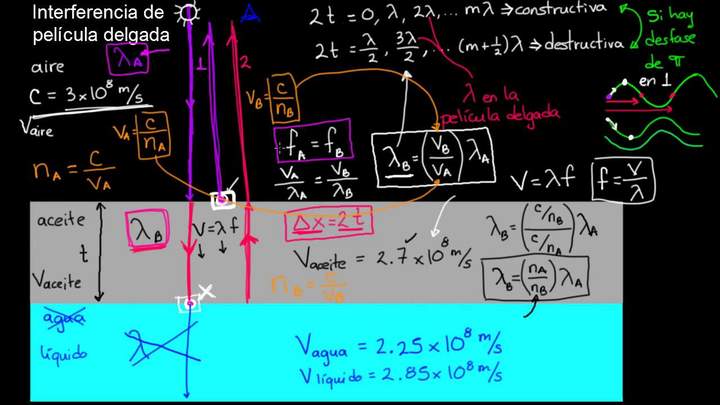 Interferencia de
película delgada
aire
λ_A
C = 3×10⁸ m/s
Vaire
V_A = c/n_A
n_A = c/V_A
1
2
Δ
V_B = c/n_B
2t = 0, λ, 2λ,... mλ ⇒ constructiva
2t = λ/2, 3λ/2, ... (m+½)λ ⇒ destructiva
Si hay
desfase
de π
en 1
λ en la
película delgada
f_A = f_B
V_A/λ_A = V_B/λ_B
λ_B = (V_B/V_A) λ_A
V = λf
f = V/λ
aceite
t
Vaceite
λ_B
V = λf
Δx = 2t
Vaceite = 2.7×10⁸ m/s
n_B = c/V_B
λ_B = ((c/n_B)/(c/n_A)) λ_A
λ_B = (n_A/n_B) λ_A
x
agua
líquido
λ
Vagua = 2.25×10⁸ m/s
Vlíquido = 2.85×10⁸ m/s